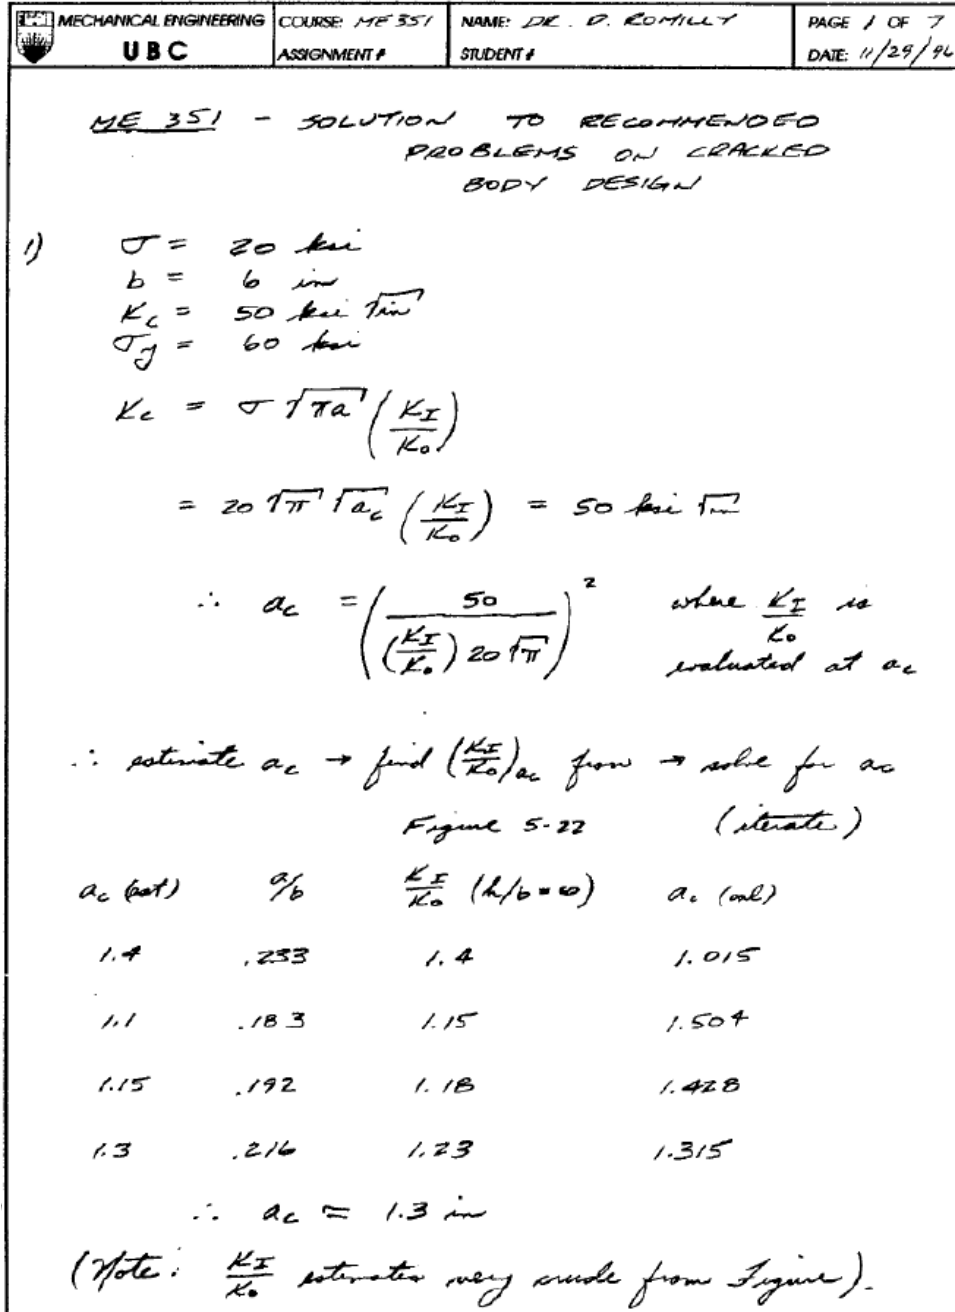 MECHANICAL ENGINEERING
UBC
COURSE: ME 351
ASSIGNMENT #
NAME: DR. D. ROMILLY
STUDENT #
PAGE 1 OF 7
DATE: 11/29/96
ME 351 - SOLUTION TO RECOMMENDED
PROBLEMS ON CRACKED
BODY DESIGN
1) σ = 20 ksi
b = 6 in
K_c = 50 ksi √in
σ_y = 60 ksi
K_c = σ √πa (K_I/K_o)
= 20 √π √a_c (K_I/K_o) = 50 ksi √in
∴ a_c = (50 / ((K_I/K_o) 20 √π))² where K_I/K_o is
evaluated at a_c
∴ estimate a_c → find (K_I/K_o)_ac from → solve for a_c
Figure 5-22 (iterate)
a_c (est) a/b K_I/K_o (h/b = ∞) a_c (cal)
1.4 .233 1.4 1.015
1.1 .183 1.15 1.504
1.15 .192 1.18 1.428
1.3 .216 1.23 1.315
∴ a_c ≈ 1.3 in
(Note: K_I/K_o estimates very crude from Figure).